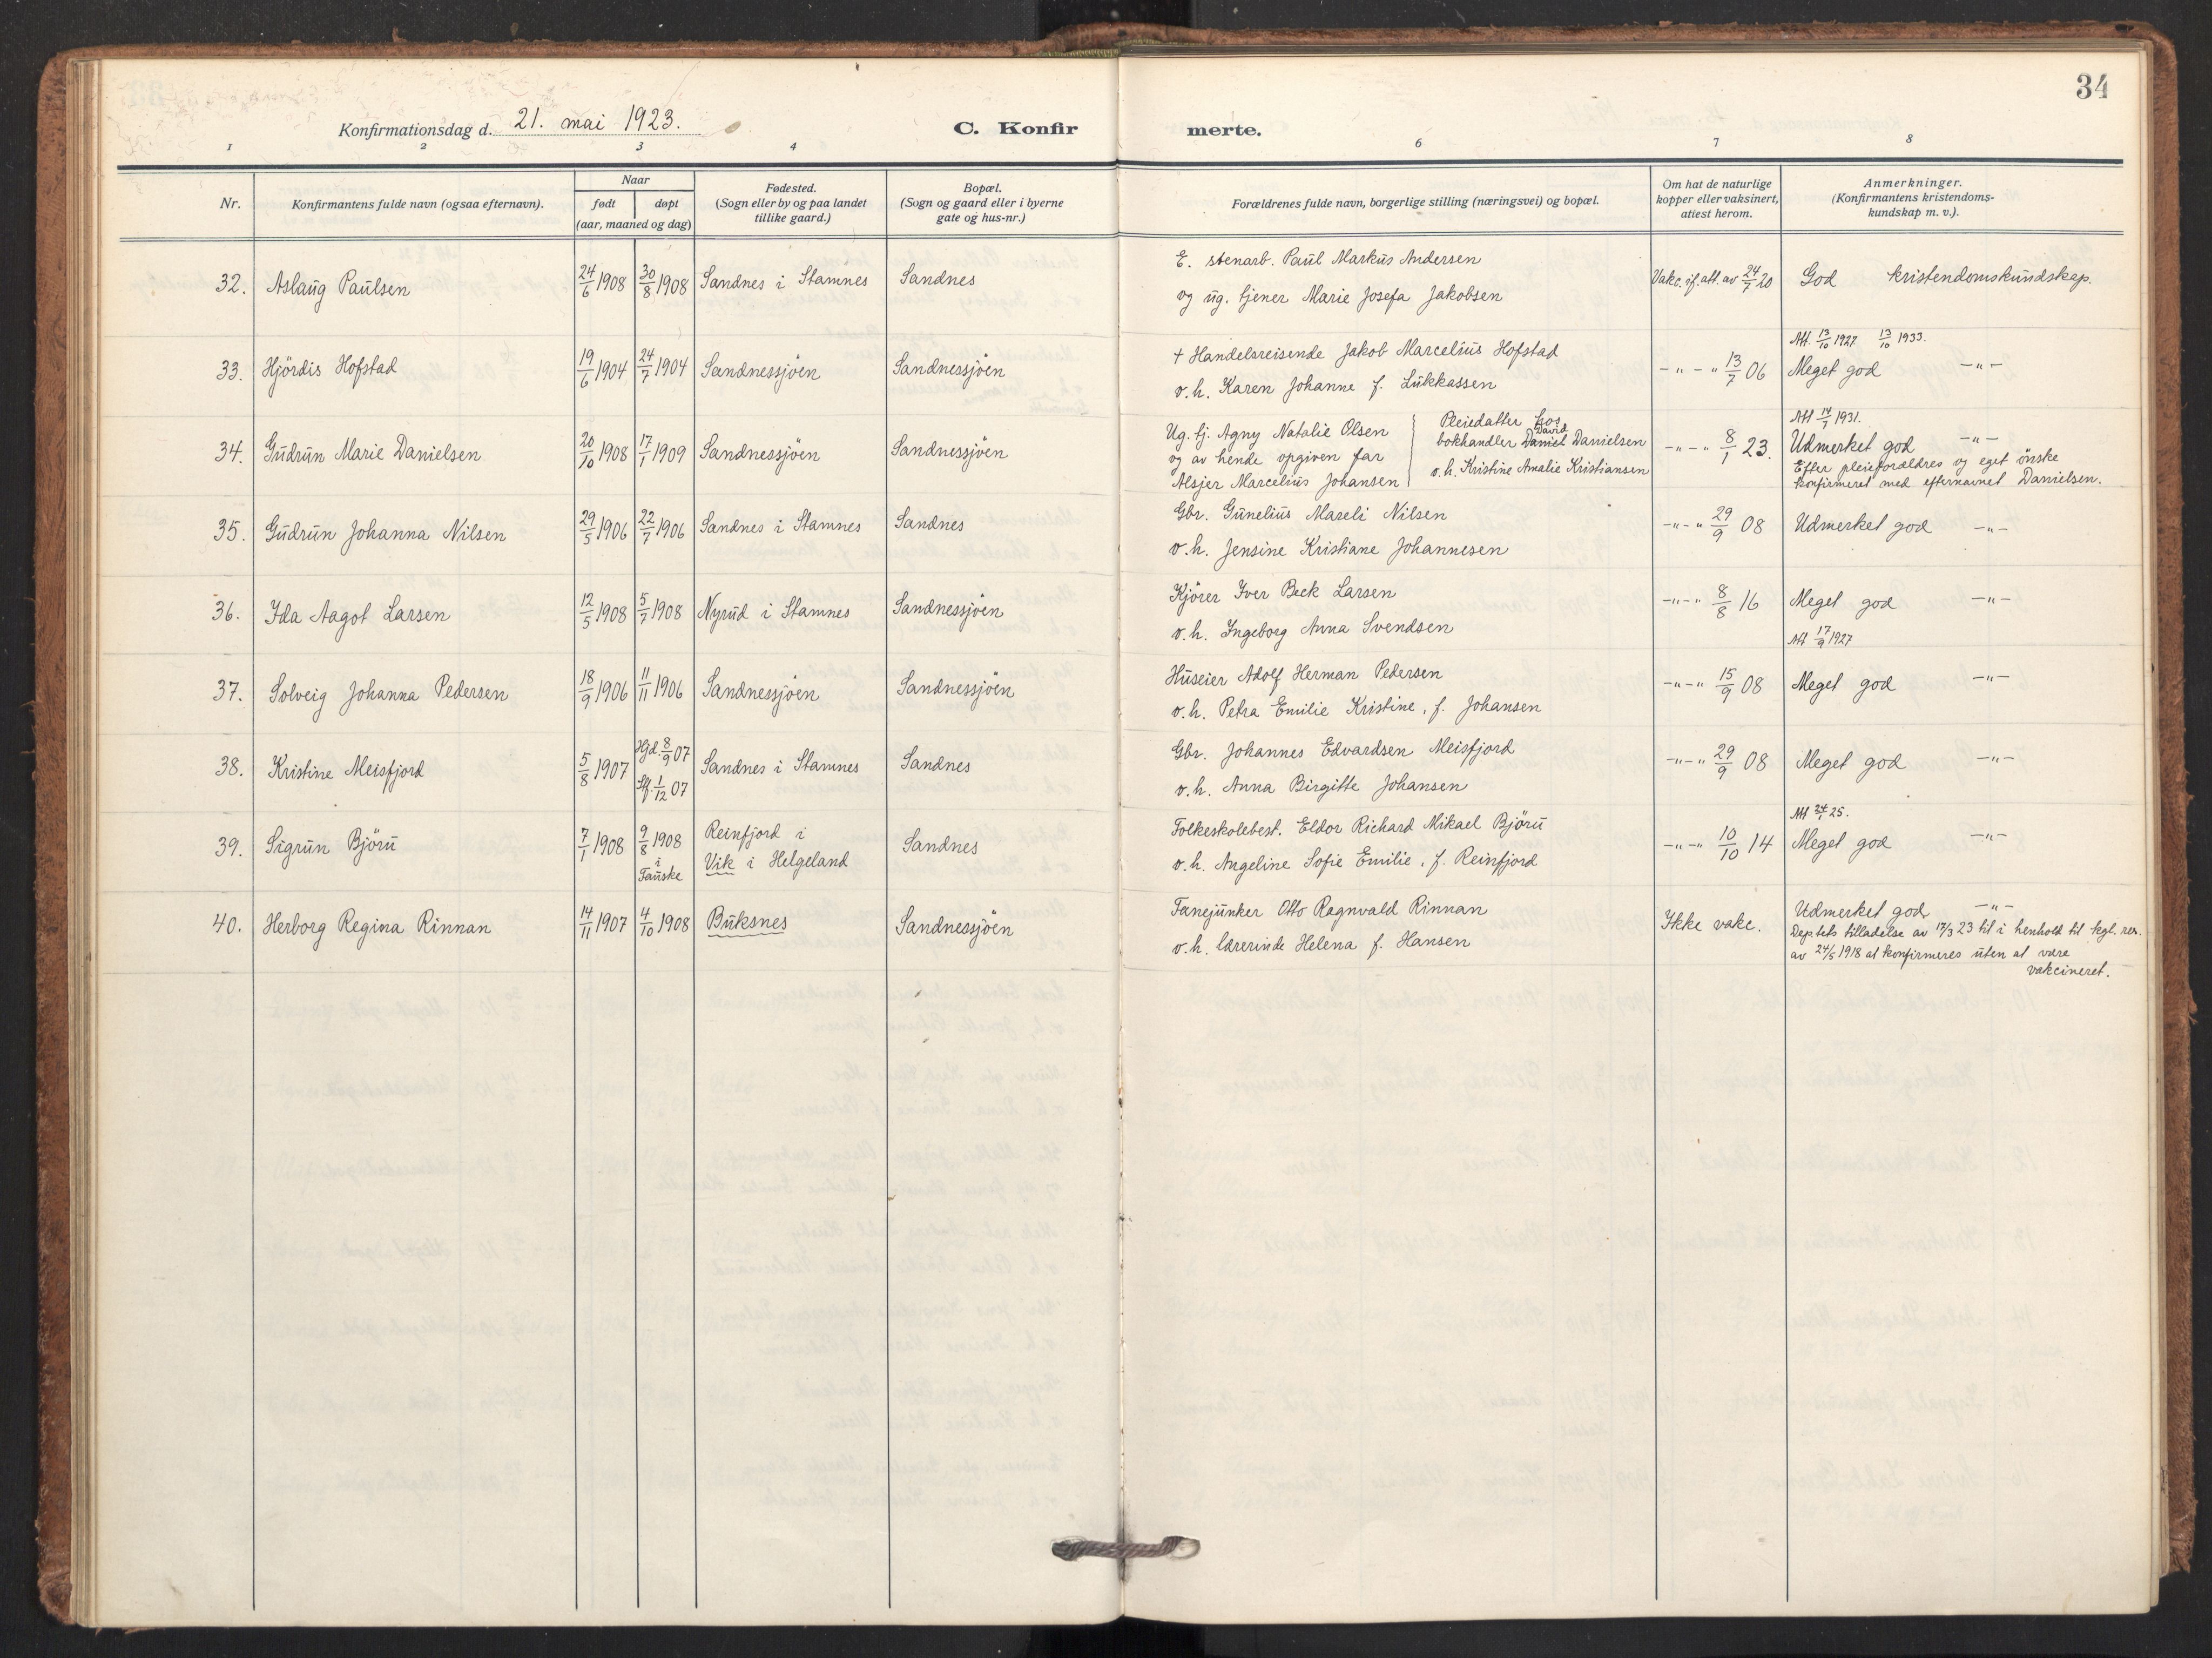 34
Konfirmationsdag d. 21. mai 1923.
C. Konfirmerte.
1 2 3 4 6 7 8
Nr.
Konfirmantens fulde navn (ogsaa efternavn).
Naar
født døpt
(aar, maaned og dag)
Fødested.
(Sogn eller by og paa landet
tillike gaard.)
Bopæl.
(Sogn og gaard eller i byerne
gate og hus-nr.)
Forældrenes fulde navn, borgerlige stilling (næringsvei) og bopæl.
Om hat de naturlige
kopper eller vaksinert,
atiest herom.
Anmerkninger.
(Konfirmantens kristendoms-
kundskap m. v.).
32. Aslaug Paulsen 24/6 1908 30/8 1908 Sandnes i Stamnes Sandnes
E. stenarb. Paul Markus Andersen
og ug. tjener Marie Josefa Jakobsen
Vakc. if. att. av 24/7 20 God kristendomskundskap.
33. Hjördis Hofstad 19/6 1904 24/7 1904 Sandnessjöen Sandnessjöen
+ Handelsreisende Jakob Marcelius Hofstad
o. h. Karen Johanne f. Lukkassen
-"-" 13/7 06
Att. 13/10 1927 13/10 1933.
Meget god -"-
34. Gudrun Marie Danielsen 20/10 1908 17/1 1909 Sandnessjöen Sandnessjöen
Ug. tj. Agny Natalie Olsen
og av hende opgiven far
Alsjer Marcelius Johansen
Pleiedatter hos
David
bokhandler Daniel Danielsen
o. h. Kristine Amalie Kristiansen
-"-" 8/1 23.
Att 14/1 1931.
Udmerket god -"-
Efter pleieforældres og eget önske
konfirmeret med efternavnet Danielsen.
35. Gudrun Johanna Nilsen 29/5 1906 22/7 1906 Sandnes i Stamnes Sandnes
Gbr. Gunelius Mareli Nilsen
o. h. Jensine Kristiane Johannesen
-"-" 29/9 08 Udmerket god -"-
36. Ida Aagot Larsen 12/5 1908 5/7 1908 Nyrud i Stamnes Sandnessjöen
Kjörer Iver Beck Larsen
o. h. Ingeborg Anna Svendsen
-"-" 8/8 16 Meget god -"-
Att 17/9 1927
37. Solveig Johanna Pedersen 18/9 1906 11/11 1906 Sandnessjöen Sandnessjöen
Huseier Adolf Herman Pedersen
o. h. Petra Emilie Kristine, f. Johansen
-"-" 15/9 08 Meget god -"-
38. Kristine Meisfjord 5/8 1907 Hjd. 8/9 07
Stf. 1/12 07 Sandnes i Stamnes Sandnes
Gbr. Johannes Edvardsen Meisfjord
o. h. Anna Birgitte Johansen
-"-" 29/9 08 Meget god -"-
39. Sigrun Björu 7/1 1908 9/8 1908
i
Fauske
Reinfjord i
Vik i Helgeland
Sandnes
Folkeskolebest. Eldor Richard Mikael Björu
o. h. Angeline Sofie Emilie, f. Reinfjord
-"-" 10/10 14
Att 24/1 25.
Meget god -"-
40. Herborg Regina Rinnan 14/11 1907 4/10 1908 Buksnes Sandnessjöen
Fanejunker Otto Ragnvald Rinnan
o. h. lærerinde Helena f. Hansen
Ikke vakc.
Udmerket god -"-
Dep.tets tilladelse av 17/3 23 til i henhold til kgl. res.
av 24/5 1918 at konfirmeres uten at være
vakcineret.